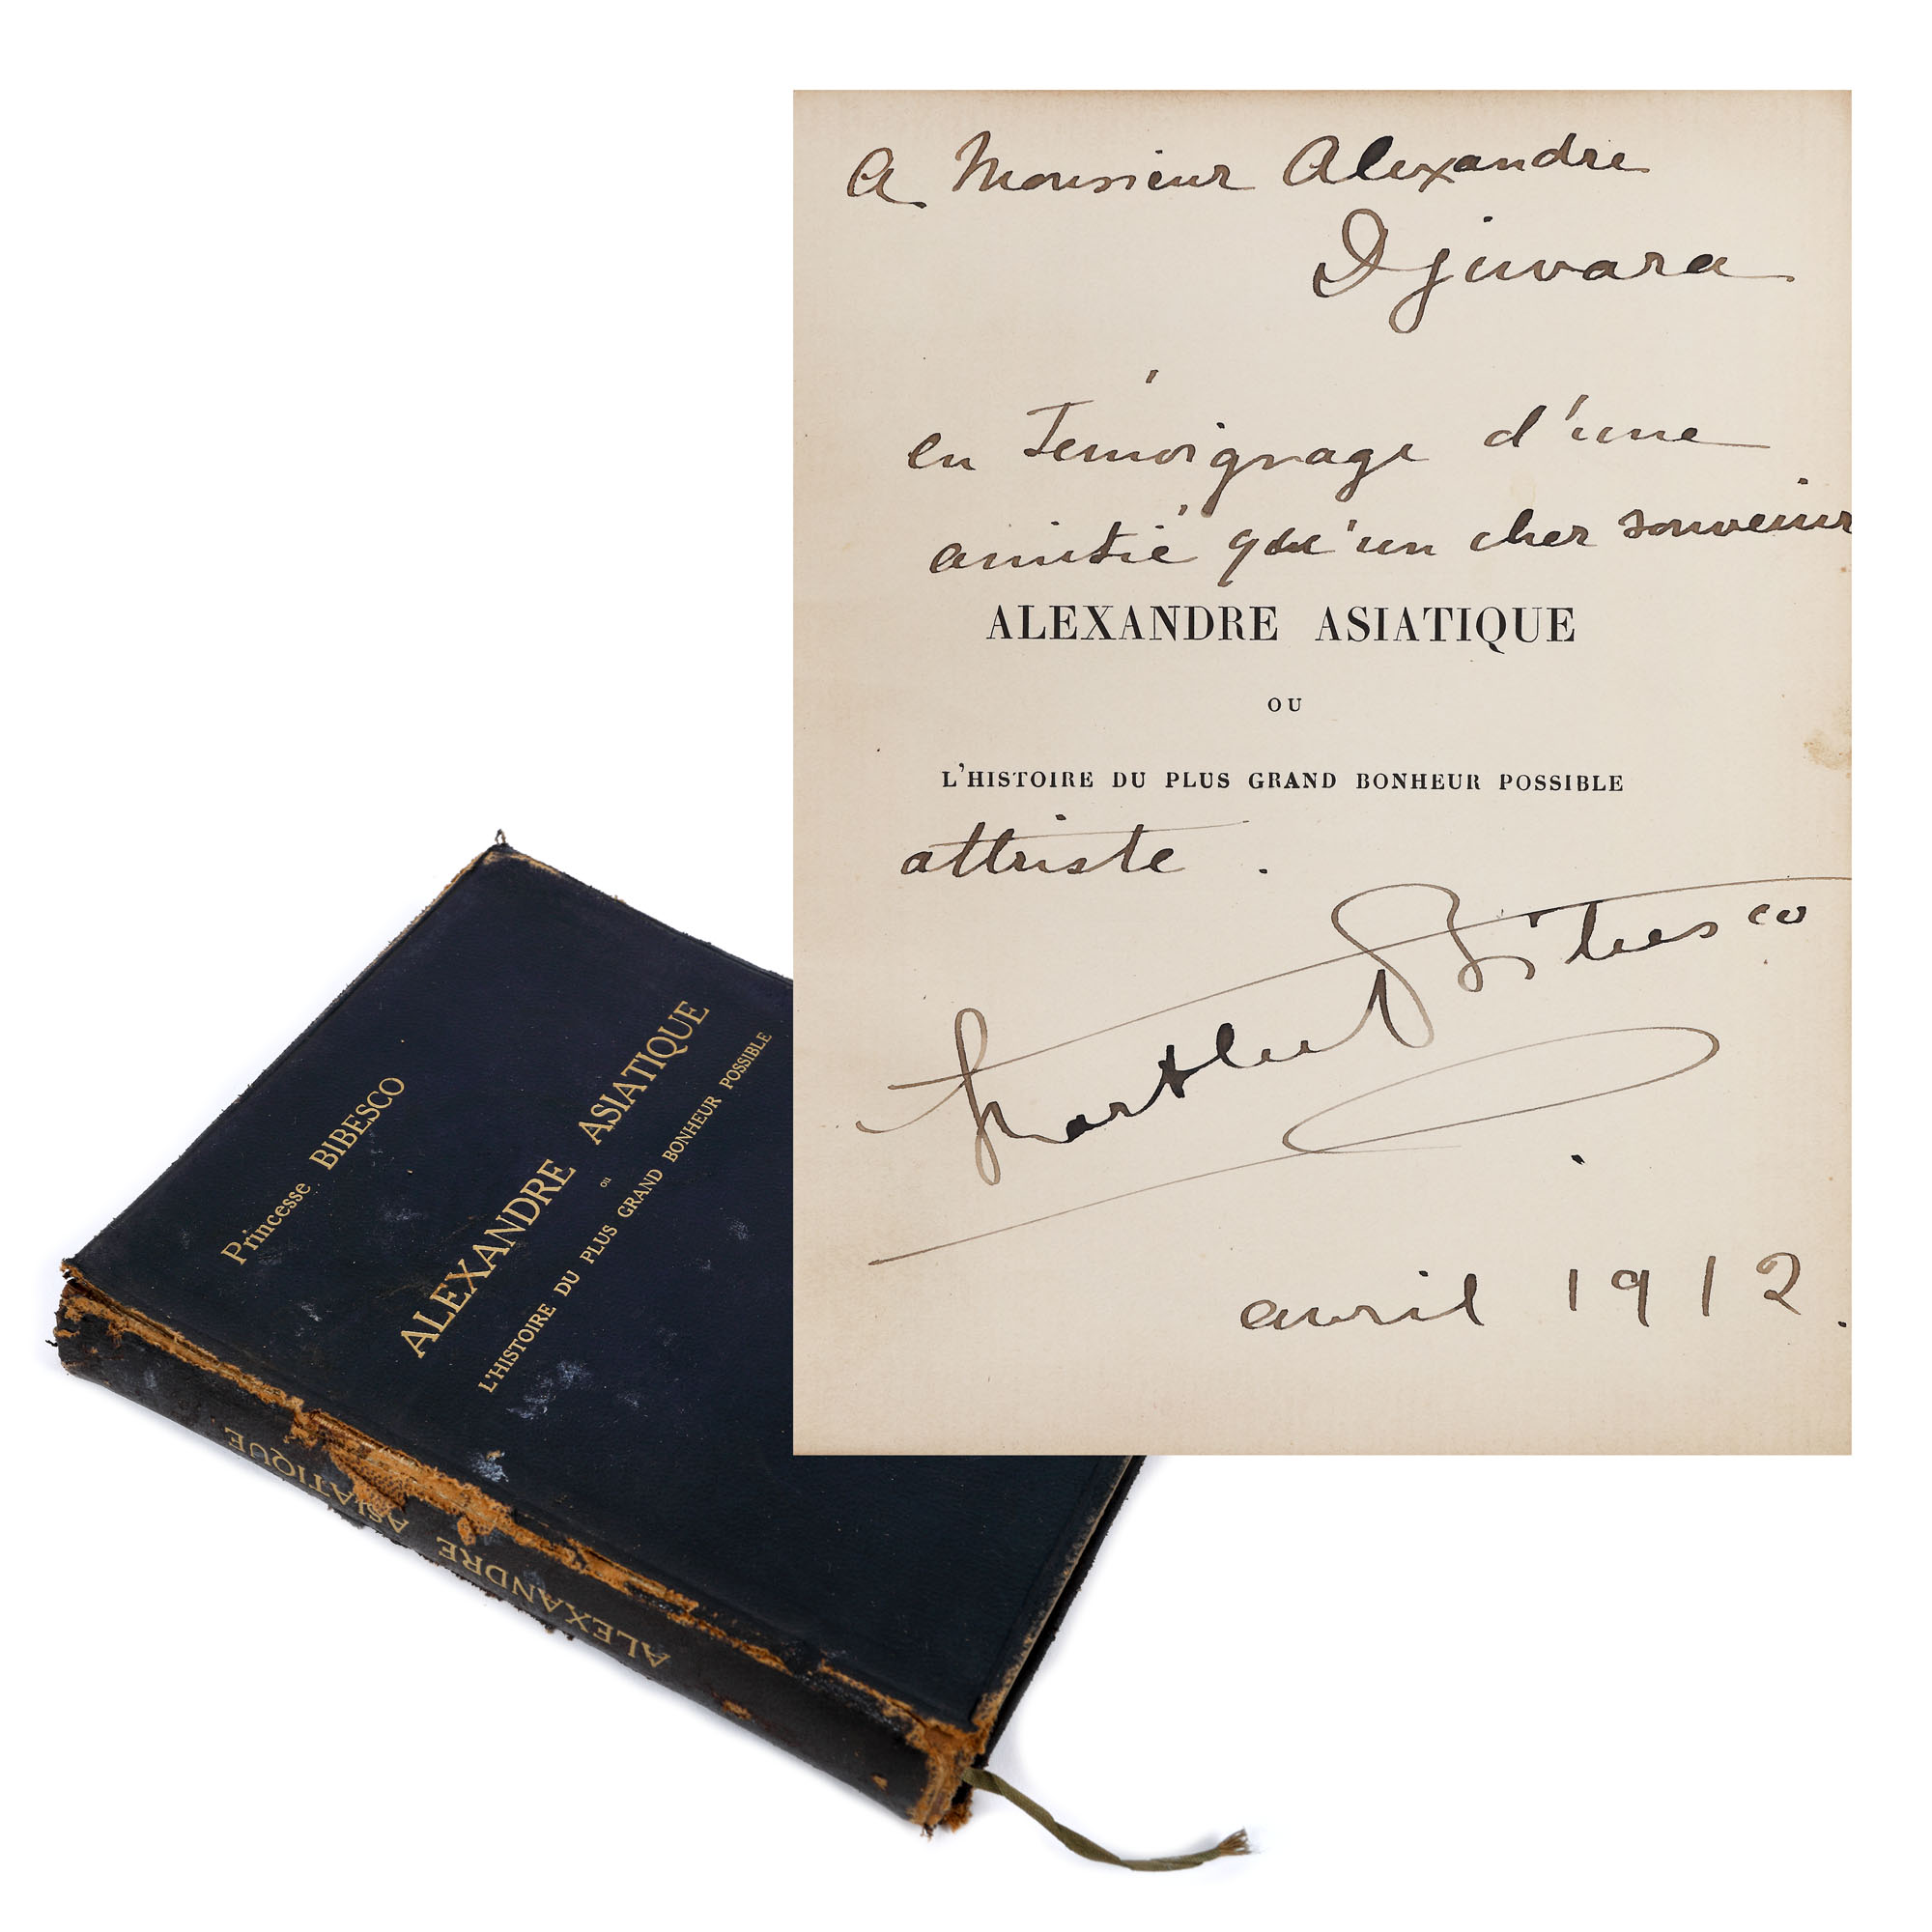 A Monsieur Alexandre
Djuvara
en Témoignage d'une
amitié qu'un cher souvenir
ALEXANDRE ASIATIQUE
OU
L'HISTOIRE DU PLUS GRAND BONHEUR POSSIBLE
attriste.
Marthe Bibesco
avril 1912.
Princesse BIBESCO
ALEXANDRE ASIATIQUE
ou
L'HISTOIRE DU PLUS GRAND BONHEUR POSSIBLE
ALEXANDRE ASIATIQUE